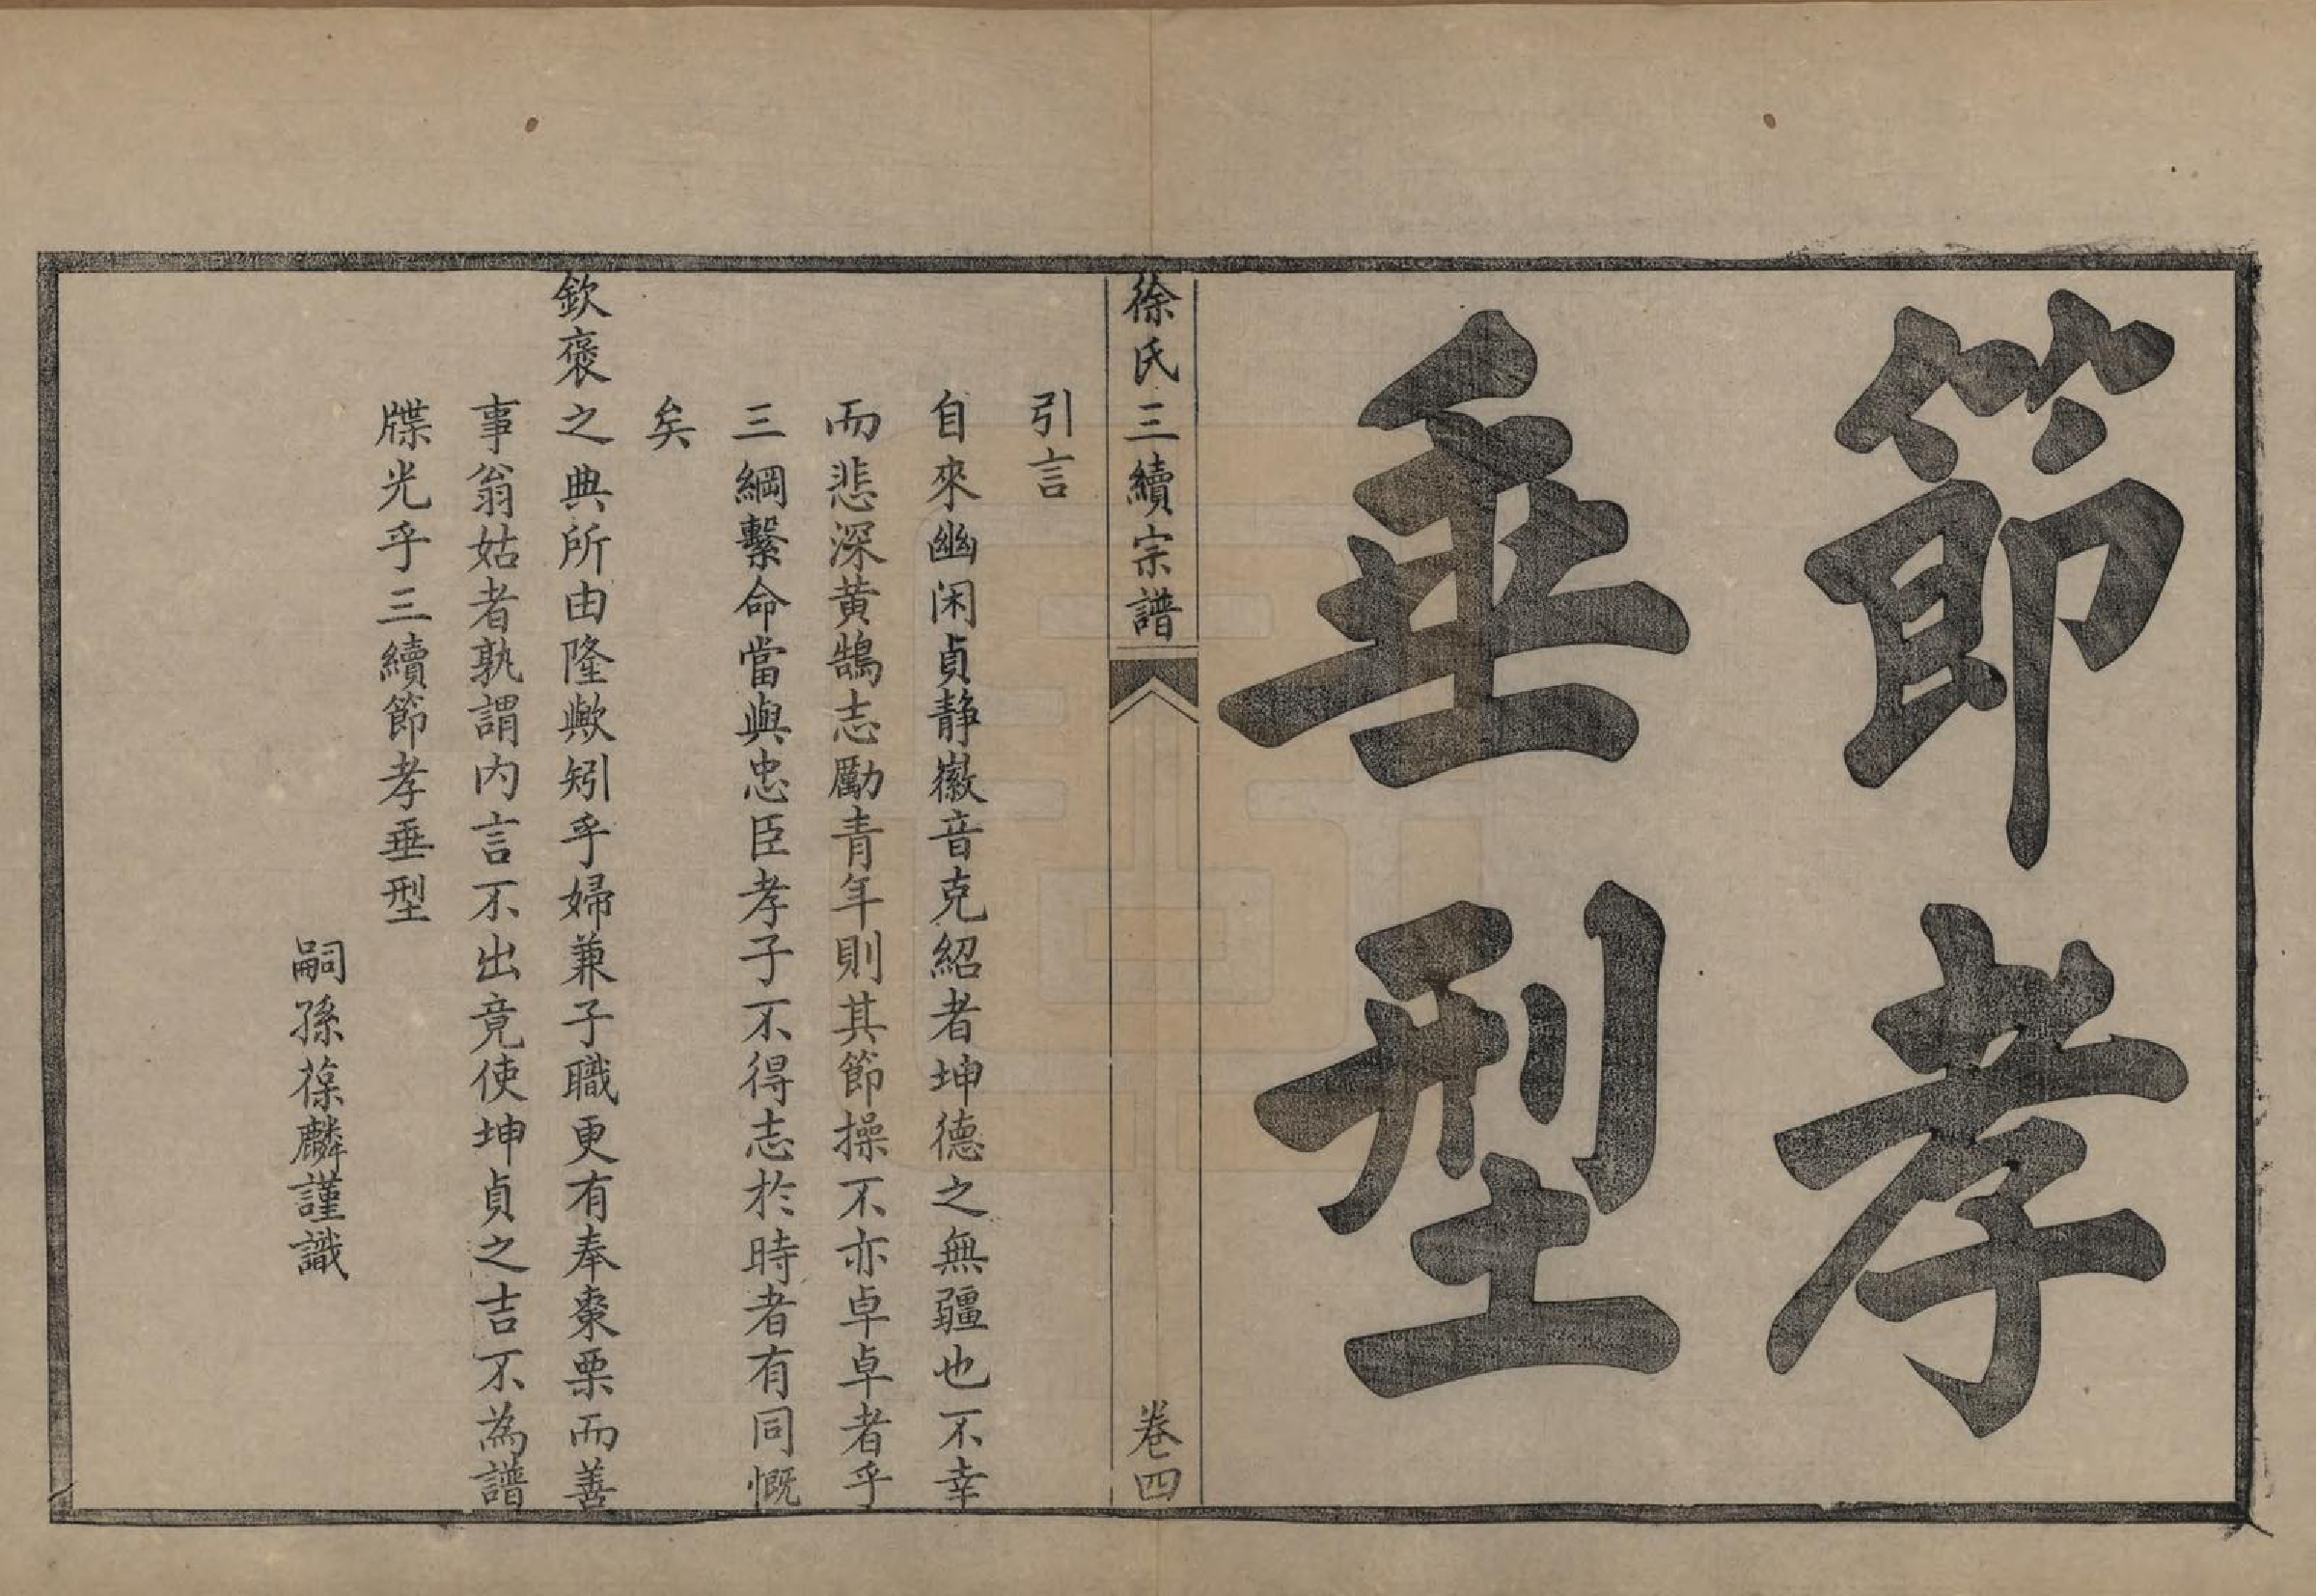 節孝
垂型
徐氏三續宗譜
卷四
引言
自來幽閑貞静徽音克紹者坤德之無疆也不幸
而悲深黄鵠志勵青年則其節操不亦卓卓者乎
三綱繫命當與忠臣孝子不得志於時者有同慨
矣
欽褒之典所由隆歟矧乎婦兼子職更有奉棗栗而善
事翁姑者孰謂内言不出竟使坤貞之吉不為譜
牒光乎三續節孝垂型
嗣孫葆麟謹識